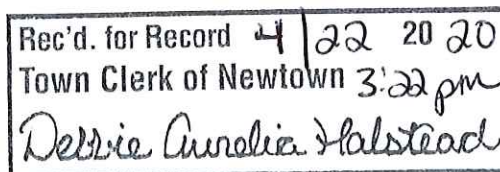 Rec'd. for Record 4/22 2020
Town Clerk of Newtown 3:22 pm
Debbie Aurelia Halstead